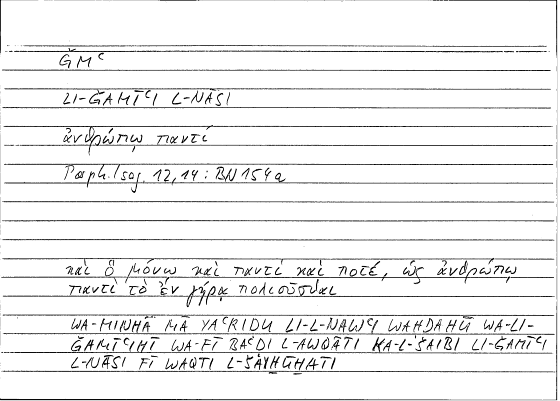 ǦMʿ
LI-ǦAMĪʿI L-NĀSI
ἀνθρώπῳ παντί
Porph. Isag. 12,14 : BN 154a
καὶ ὃ μόνῳ καὶ παντὶ καὶ ποτέ, ὡς ἀνθρώπῳ
παντὶ τὸ ἐν γήρᾳ πολιοῦσθαι
WA-MINHĀ MĀ YAʿRIḌU LI-L-NAWʿI WAḤDAHŪ WA-LI-
ǦAMĪʿIHĪ WA-FĪ BAʿḌI L-AWQĀTI KA-L-ŠAIBI LI-ǦAMĪʿI
L-NĀSI FĪ WAQTI L-ŠAYḪŪḪATI